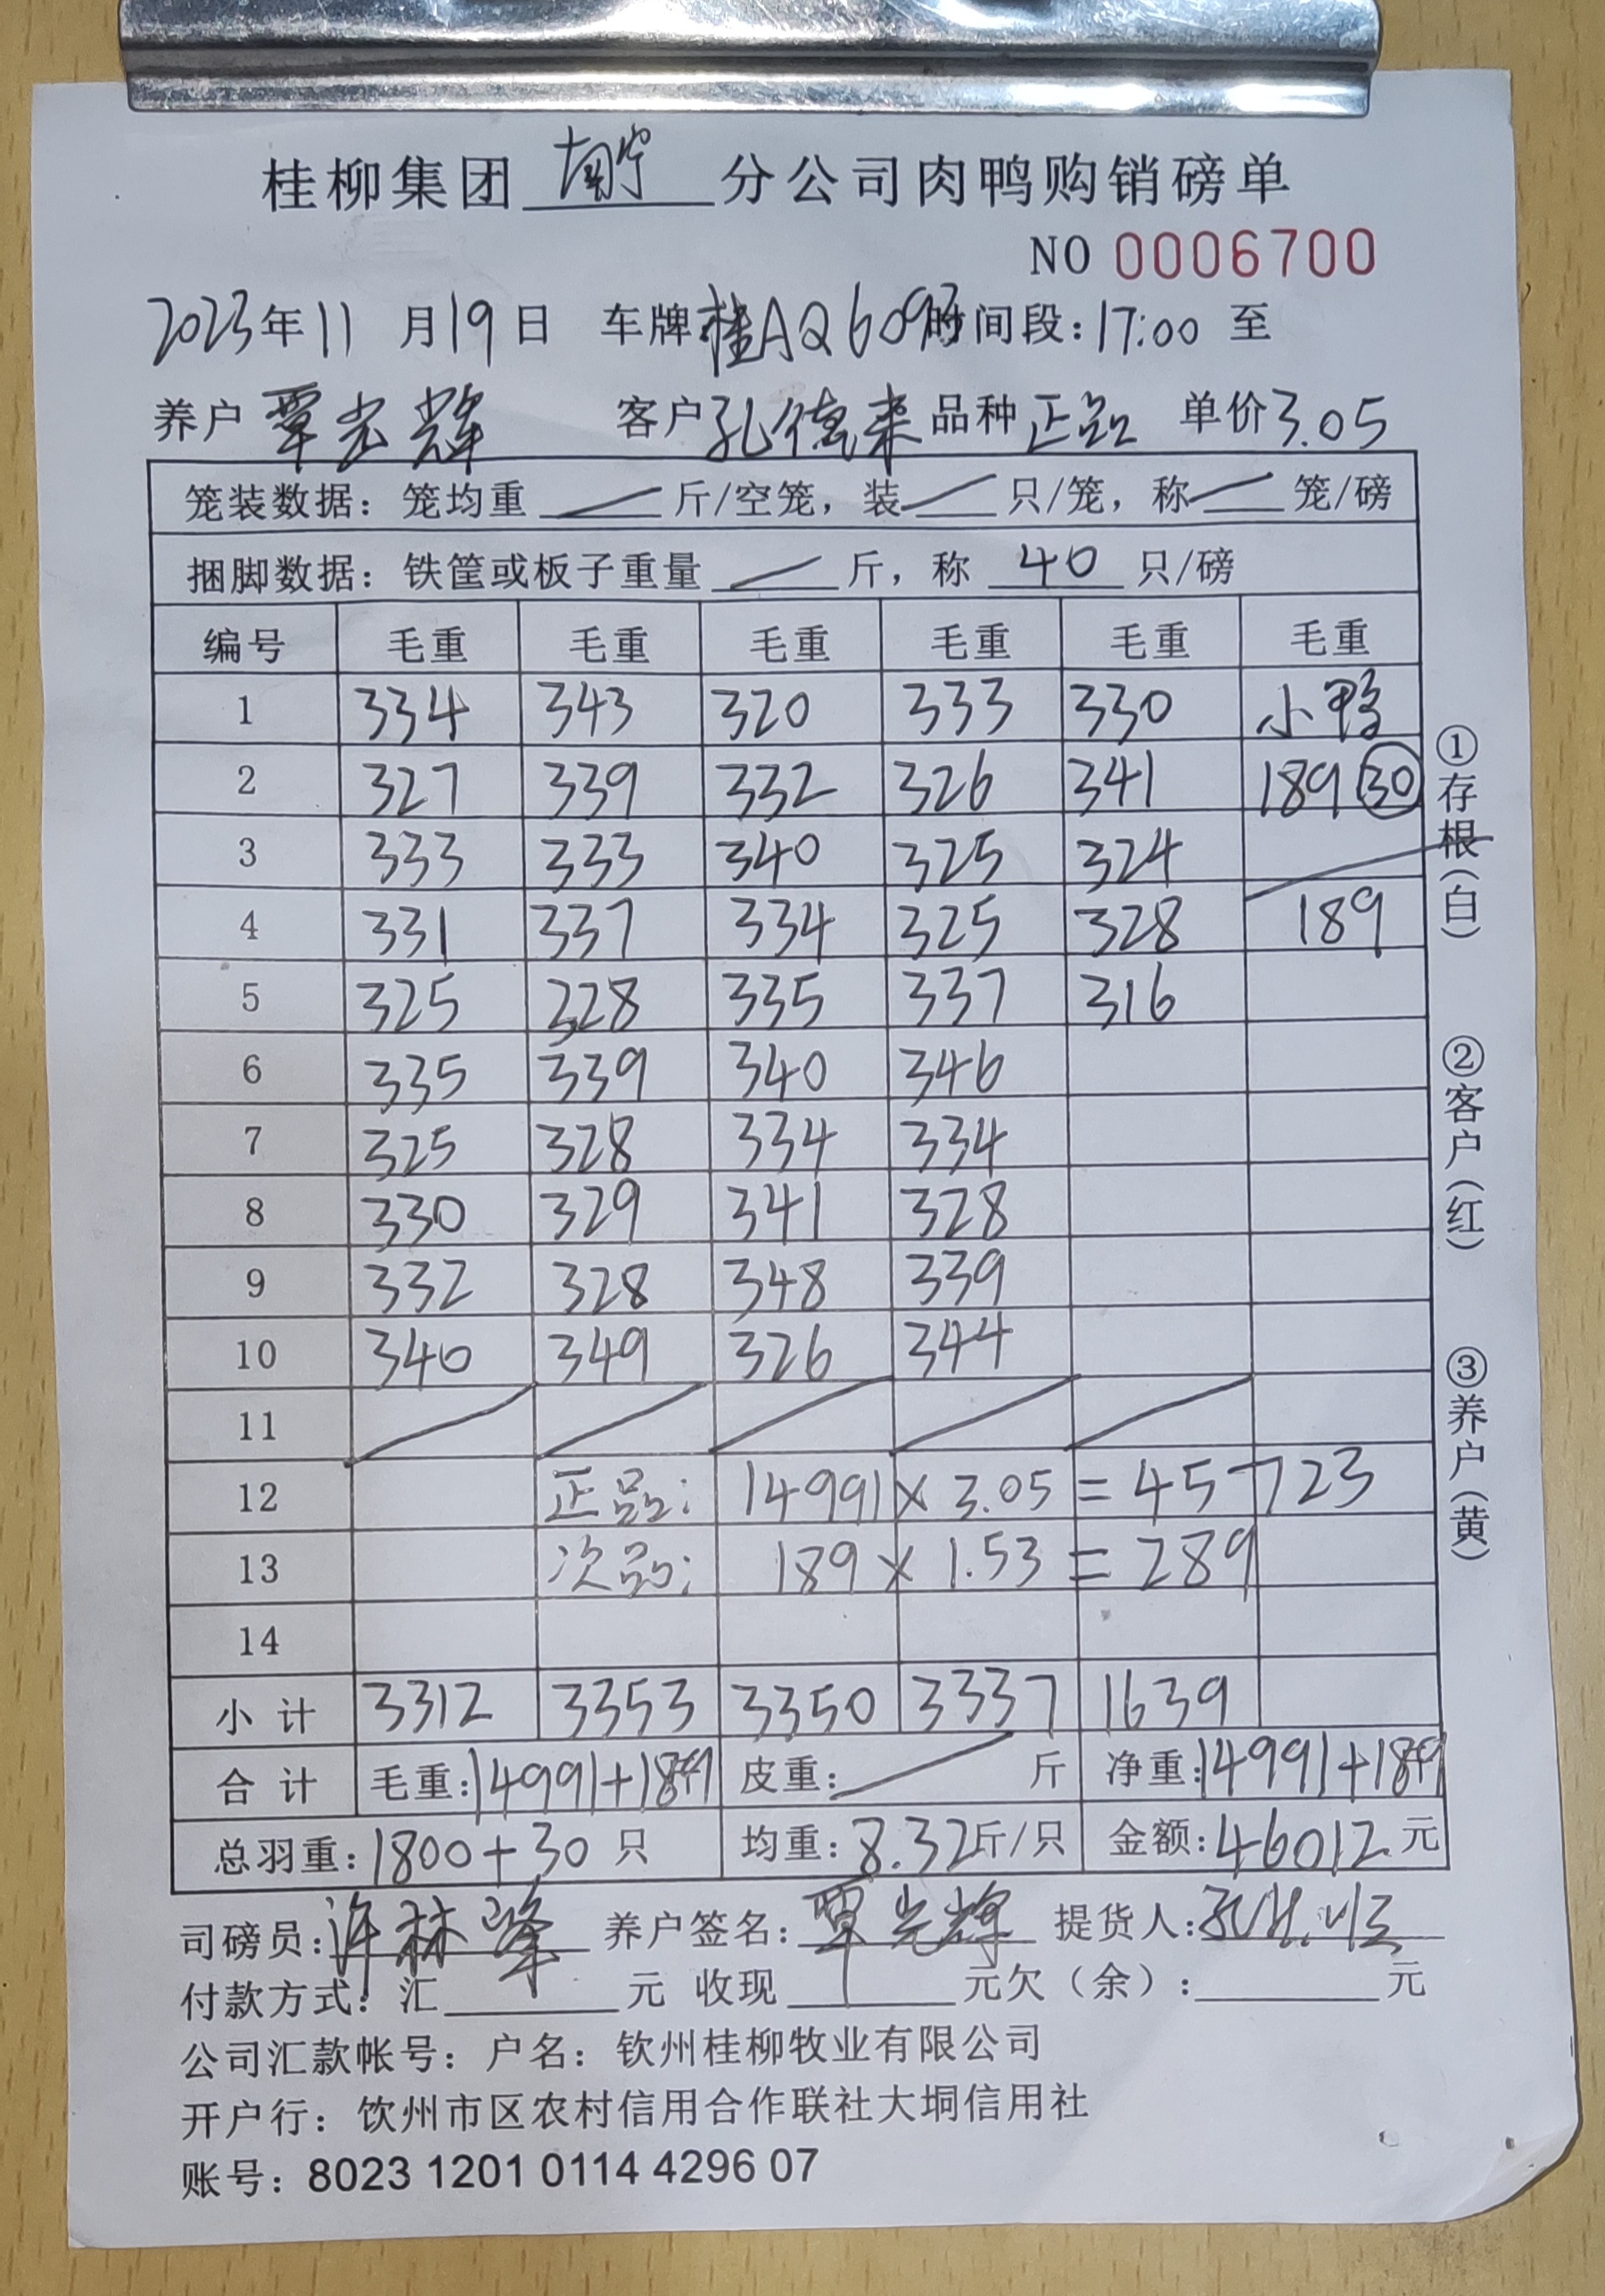 桂柳集团 南宁 分公司肉鸭购销磅单
NO 0006700
2023年11月19日 车牌桂AQ6093时间段:17:00 至
养户 覃光辉 客户 孔德来 品种 正品 单价3.05
笼装数据：笼均重 / 斤/空笼，装 / 只/笼，称 / 笼/磅
捆脚数据：铁筐或板子重量 / 斤，称 40 只/磅
编号 毛重 毛重 毛重 毛重 毛重 毛重
1 334 343 320 333 330 小鸭
2 327 339 332 326 341 189 ㉚
3 333 333 340 325 324
4 331 337 334 325 328 189
5 325 328 335 337 316
6 335 339 340 346
7 325 328 334 334
8 330 329 341 328
9 332 328 348 339
10 340 349 326 344
11 / / / / /
12 正品: 14991 × 3.05 = 45723
13 次品: 189 × 1.53 = 289
14
小计 3312 3353 3350 3337 1639
合计 毛重:14991+189 皮重: / 斤 净重:14991+189
总羽重:1800+30 只 均重:8.32斤/只 金额:46012元
司磅员:许林峰 养户签名:覃光辉 提货人:
付款方式：汇 元 收现 元欠（余）: 元
公司汇款帐号：户名：钦州桂柳牧业有限公司
开户行：饮州市区农村信用合作联社大垌信用社
账号：8023 1201 0114 4296 07
①存根（白）
②客户（红）
③养户（黄）